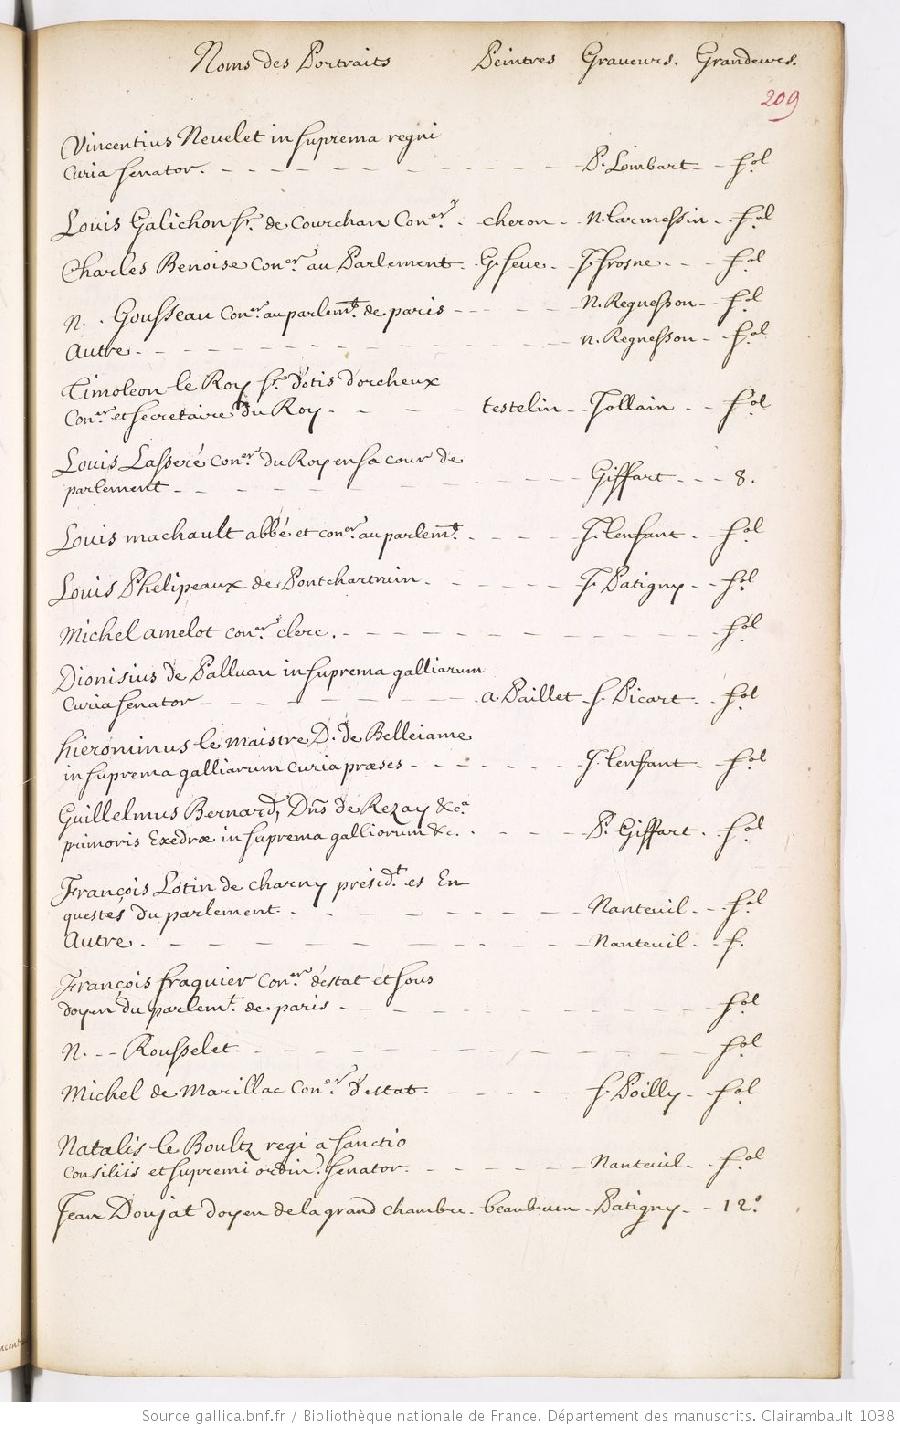 Noms des Portraits Peintres Graveurs. Grandeurs.
209
Vincentius Nevelet in suprema regni
Curia senator. - - - - - - - - P. Lombart - - fol
Louis Galichon sr. de Courchan Coner. - cheron - N larmessin - fol
Charles Benoise Coner. au Parlement - G. seve - J frosne - - fol
N. . Gousseau Coner. au parlemt. de paris - - - - N. Regnesson - fol
Autre - - - - - - - n. Regnesson - fol
Timoleon le Roy sr. detis dorcheux
Coner. et secretaire du Roy - - - testelin - Jollain - - fol
Louis Lasseré coner. du Roy en sa cour de
parlement - - - - - - - - Giffart - - - 8.
Louis machault abbé et coner. au parlemt. - - - J. lenfant - fol
Louis Phelipeaux de Pontchartrain - - - - J. Patigny - - fol
Michel amelot coner. clerc. - - - - - - - - fol
Dionisius de Palluau in suprema galliarum
Curia senator - - - - a Paillet - S. Picart - fol
hierominus le maistre D. de Belleiame
in suprema galliarum curia præses - - - - - J. lenfant - fol
Guillelmus Bernard, Dns de Rezay &ca
primoris Exedræ in suprema galliorum &c. - - - P. Giffart . fol
François Lotin de charny présidt. es En
questes du parlement - - - - - Nanteuil - - fol
Autre - - - - - - - Nanteuil - f.
François fraguier Coner. destat et sous
doyen du parlemt. de paris - - - - - - fol
N. - - Rousselet - - - - - - fol
Michel de Marillac Coner. destat - - - - f. Poilly - fol
Natalis le Boultz regi a sanctio
Consiliis et supremi ordin. senator. - - - - Nanteuil - fol
Jean Doujat doyen de la grand chambre - beaubrun - Patigny - - 12°
Source gallica.bnf.fr / Bibliothèque nationale de France. Département des manuscrits. Clairambault 1038